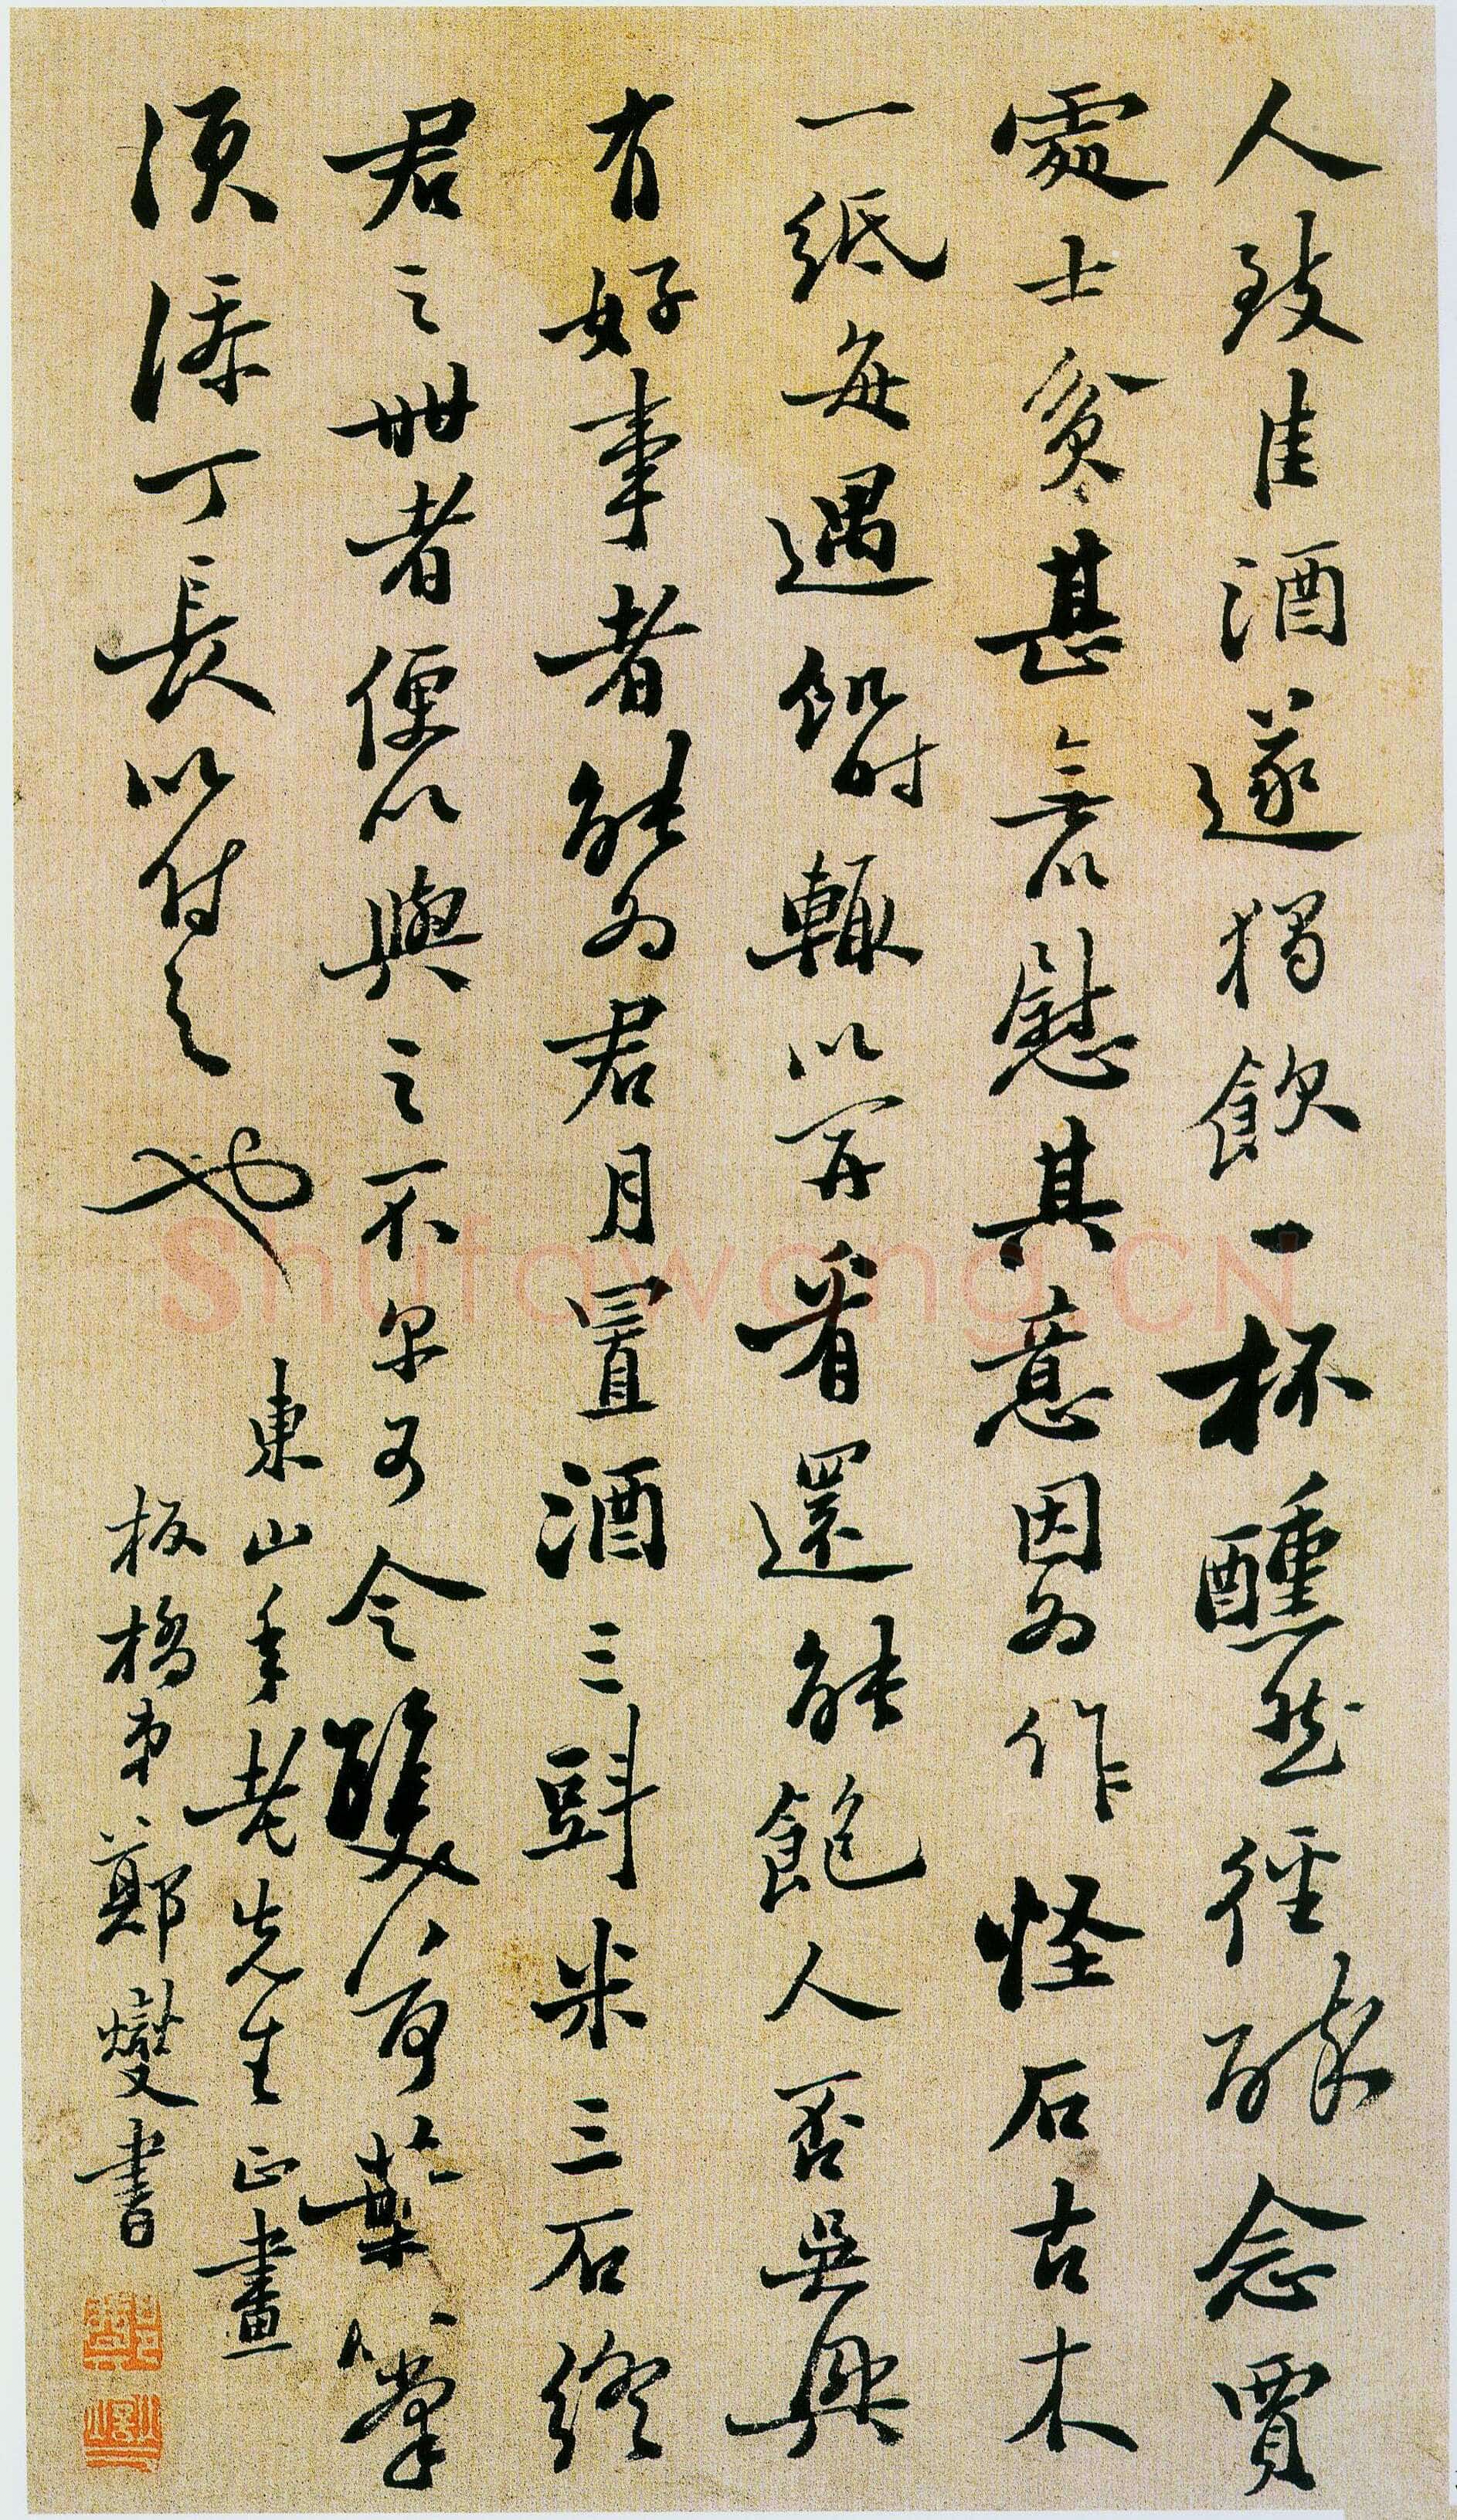 人致佳酒遂獨飲一杯醺然徑醉念賈
處士貧甚無以慰其意因為作怪石古木
一紙每遇飢时輒以開看還能飽人否吳興
有好事者能為君月置酒三㪷米三石終
君之世者便以與之不尔可令雙荷葉掌
須添丁長以付之也
東山年老先生正畫
板橋弟鄭燮書
Shufawang.CN